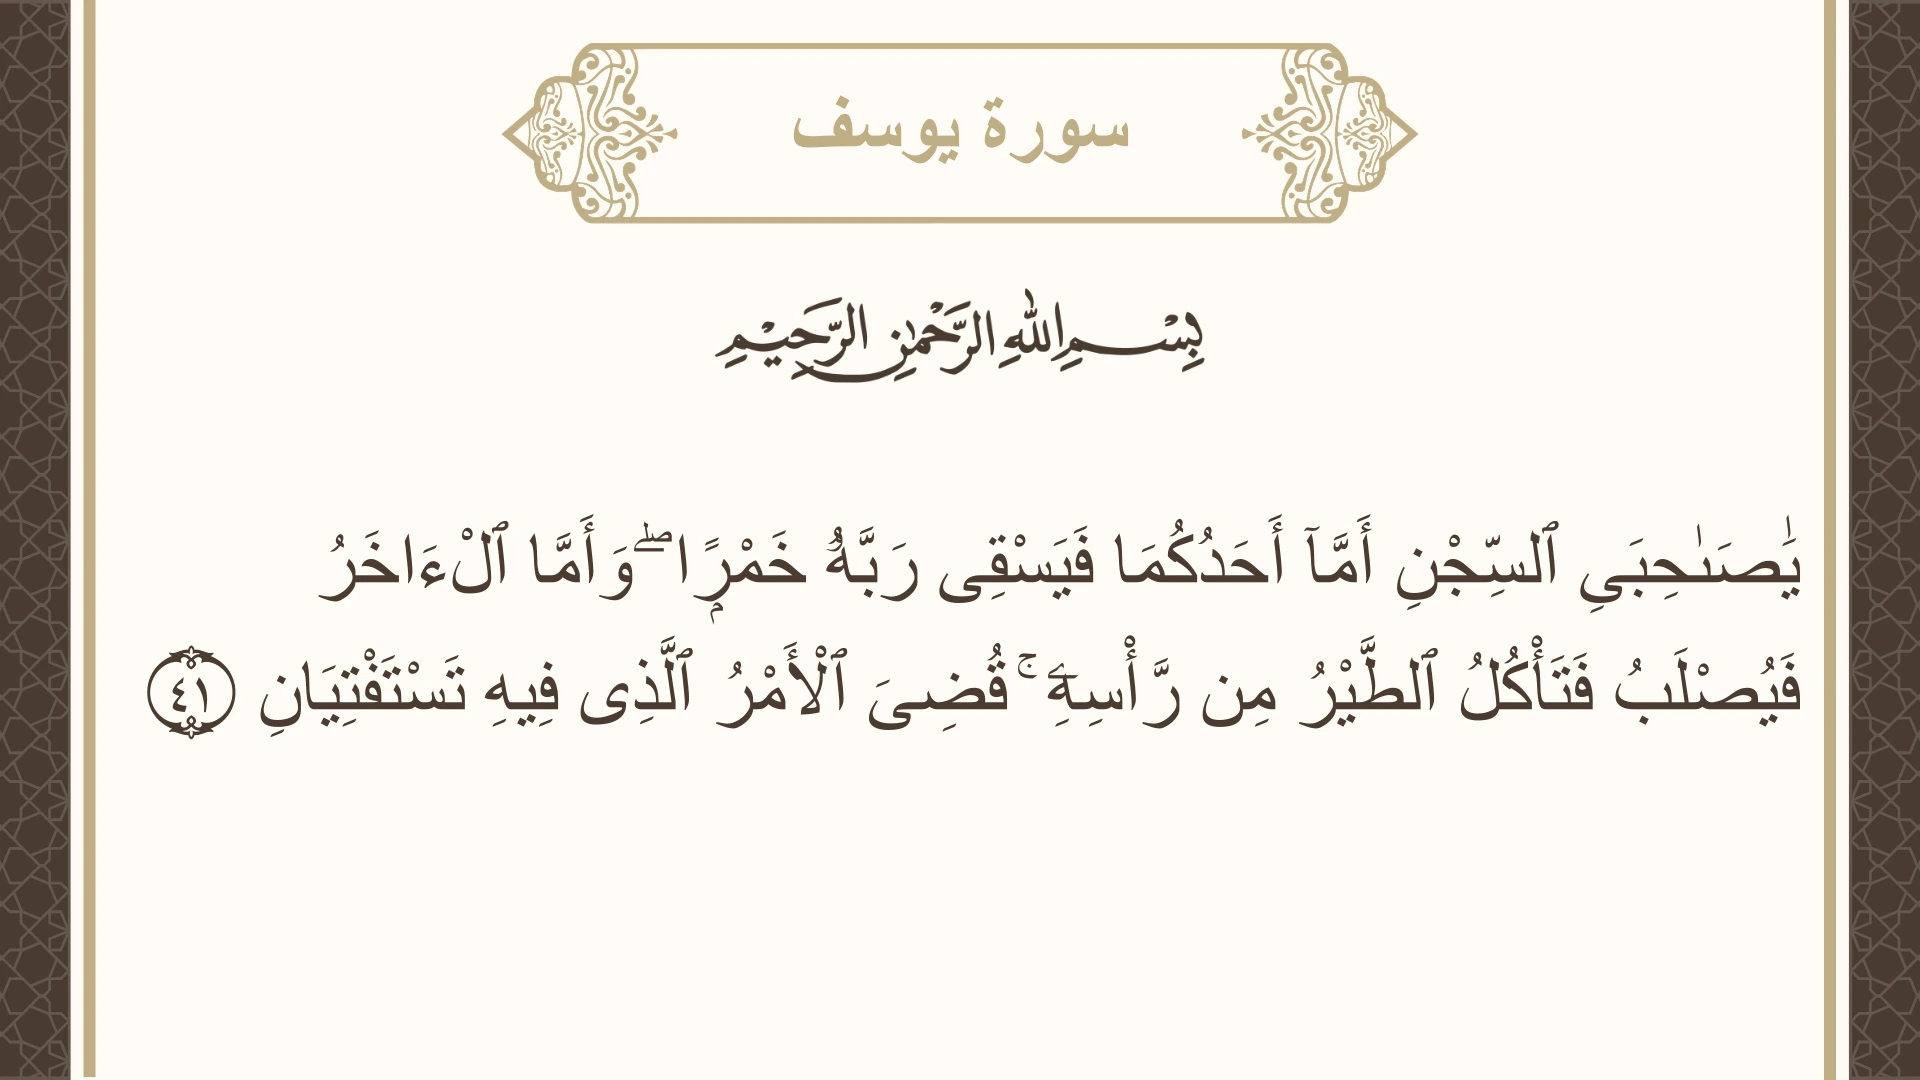 سورة يوسف
بِسْمِ اللهِ الرَّحْمٰنِ الرَّحِيْمِ
يَٰصَىٰحِبَىِ ٱلسِّجْنِ أَمَّآ أَحَدُكُمَا فَيَسْقِى رَبَّهُۥ خَمْرًۭا ۖ وَأَمَّا ٱلْءَاخَرُ
فَيُصْلَبُ فَتَأْكُلُ ٱلطَّيْرُ مِن رَّأْسِهِۦ ۚ قُضِىَ ٱلْأَمْرُ ٱلَّذِى فِيهِ تَسْتَفْتِيَانِ ٤١